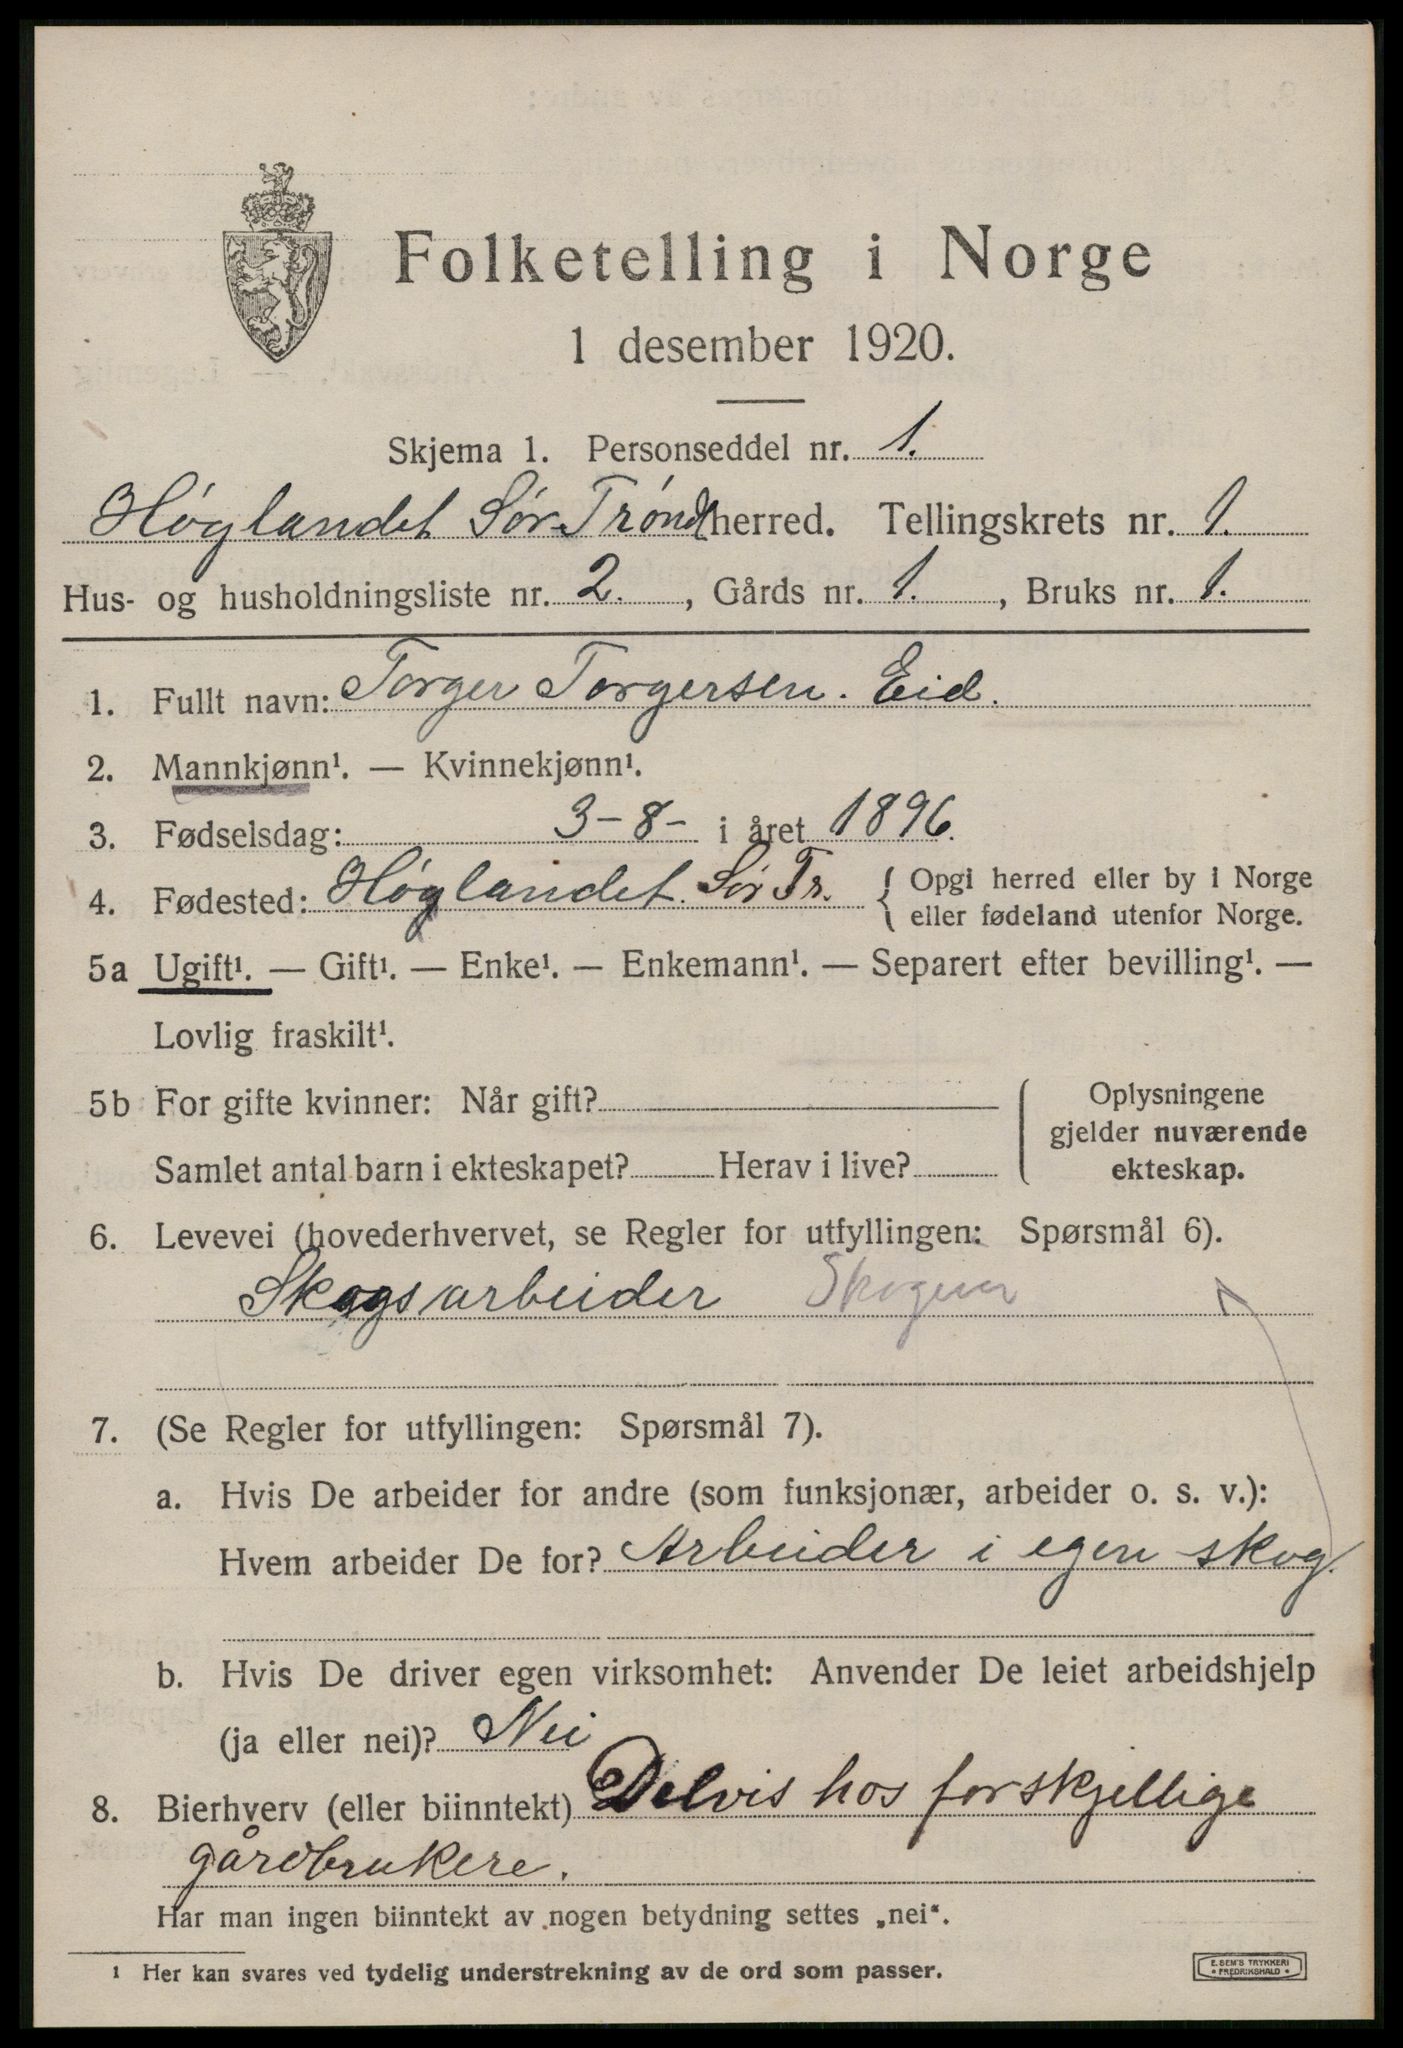 Folketelling i Norge
1 desember 1920.
Skjema 1. Personseddel nr. 1.
Høglandet Sør-Trønd herred. Tellingskrets nr. 1.
Hus- og husholdningsliste nr. 2. , Gårds nr. 1. , Bruks nr. 1.
1. Fullt navn: Torger Torgersen. Eid.
2. Mannkjønn¹. — Kvinnekjønn¹.
3. Fødselsdag: 3-8- i året 1896.
4. Fødested: Høglandet. Sør Tr. { Opgi herred eller by i Norge
eller fødeland utenfor Norge.
5a Ugift¹. — Gift¹. — Enke¹. — Enkemann¹. — Separert efter bevilling¹. —
Lovlig fraskilt¹.
5b For gifte kvinner: Når gift?
Samlet antal barn i ekteskapet? Herav i live?
Oplysningene
gjelder nuværende
ekteskap.
6. Levevei (hovederhvervet, se Regler for utfyllingen: Spørsmål 6).
Skogsarbeider
7. (Se Regler for utfyllingen: Spørsmål 7).
a. Hvis De arbeider for andre (som funksjonær, arbeider o. s. v.):
Hvem arbeider De for? Arbeider i egen skog.
b. Hvis De driver egen virksomhet: Anvender De leiet arbeidshjelp
(ja eller nei)? Nei
8. Bierhverv (eller biinntekt) Delvis hos forskjellige
gårdbrukere.
Har man ingen biinntekt av nogen betydning settes „nei".
¹ Her kan svares ved tydelig understrekning av de ord som passer.
E. SEM'S TRYKKERI
• FREDRIKSHALD •